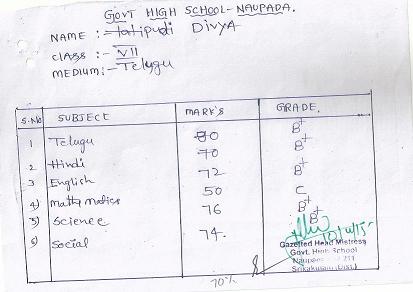 GOVT HIGH SCHOOL- NAUPADA.
NAME :- Tatipudi DivyA
ClASS :- VII
MEDIUM:- Telugu
S.No SUBJECT MARK'S GRADE.
1 Telugu 80 B+
2 Hindi 70 B+
3 English 72
4) Mathmatics 50 C
5) Science 76 B+
6) Social 74. B+
10/11/15
Gazetted Head Mistress
Govt. High School
Srikakulam (Dist.)
70%